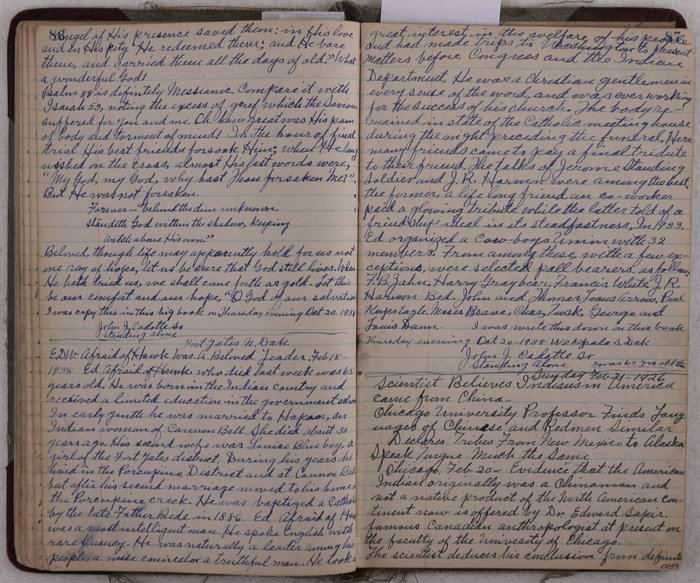 86
Angel of His presence saved them: in His love
and in His pity He redeemed them; and He bare
them, and carried them all the days of old." What
a wonderful God!
Psalm 88 is difinitely Messianic. Compare it with
Isaiah 53, noting the excess of grey which the Saviour
suffered for you and me. Oh, how great was His pain
of body and torment of mind! In the hour of final
trial His best friends forsook Him; when He hung
on the cross, almost His last words were,
"My God, my God, why hast Thou forsaken Me?"
But He was not forsaken.
Forever— behind the dim unknown,
Standeth God within the shadow, keeping
watch above His own."
Beloved, though life may apparently hold for us not
one ray of hope, let us be sure that God still lives. When
He hath tried us, we shall come forth as gold. Let this
be our comfort and our hope, "O God of our salvation
I was copy this in this big book on Thursday evening Oct 20. 1938
John J. Cadotte Sr
Standing alone
Fort Yates N. Dak
EDW. Afraid of Hawk Was. A Beloved Leader. Feb 18–
1938 Ed. Afraid of Hawk who died last week was 65
years old, He was born in the Indian country and
received a limited education in the government school
In early youth he was married to Hapaa, an
Indian woman of Cannon Ball. She died about 30
years ago. His second wife was Louise Blue boy, a
girl of the Fort Yates district. During his years he
lived in the Porcupine District and at Cannon Ball
but after his second marriage moved to his home on
the Porcupine creek. He was baptized a Catholic
by the late Father Bede in 1886. Ed Afraid of Hawk
was a most intelligent man. He spoke English with
rare fluency. He was naturally a leader among his
people, a wise councilor a truthful man. He took a
great interest in the welfare of his people
and had made trips to Washington to present
matters before Congress and the Indian
Department. He was a Christian gentleman in
every sense of the word, and was ever working
for the success of his church. The body re
mained in state of the Catholic meeting house
during the night preceding the funeral. Here
many friends came to pay a final tribute
to their friend. The talks of Jerome Standing
Soldier and J. R. Harmon were among the best
the former a life long friend an co-worker
paid a glowing tribute while the latter told of a
friendship ideal in its steadfastness, In 1933.
Ed organized a Cow-boys Union with 32
members. From among these with a few ex
ceptions, were selected pall bearers, as follows
F. B. Zahn, Harry Gray bear, Francis White, J. R.
Harmon. Bed. John and Thomas, Louis Arrow, Paul
Keeps Eagle, Moses Brave, Chas, Tusk, George and
Louis Dunn. I was wrote this down on this book
Thursday evening Oct 20-1938 Wakpala S. Dak
John J. Cadotte Sr
Standing Alone
Sunday Feb 21, 1926
Scientist Believes Indians in America
came from China–
Chicago University Professor Finds Lang
uages of Chinese and Redmen Similar
Declares Tribes From New Mexico to Alaska
Speak Tongue Much the Same
Chicago Feb 20– Evidence that the American
Indian originally was a Chinaman and
not a native product of the North American con-
tinent now is offered by Dr. Edward Sapir.
famous Canadian anthropologist at present on
the faculty of the Univesity of Chicago.
The scientist deduces his conclusion from definite
over